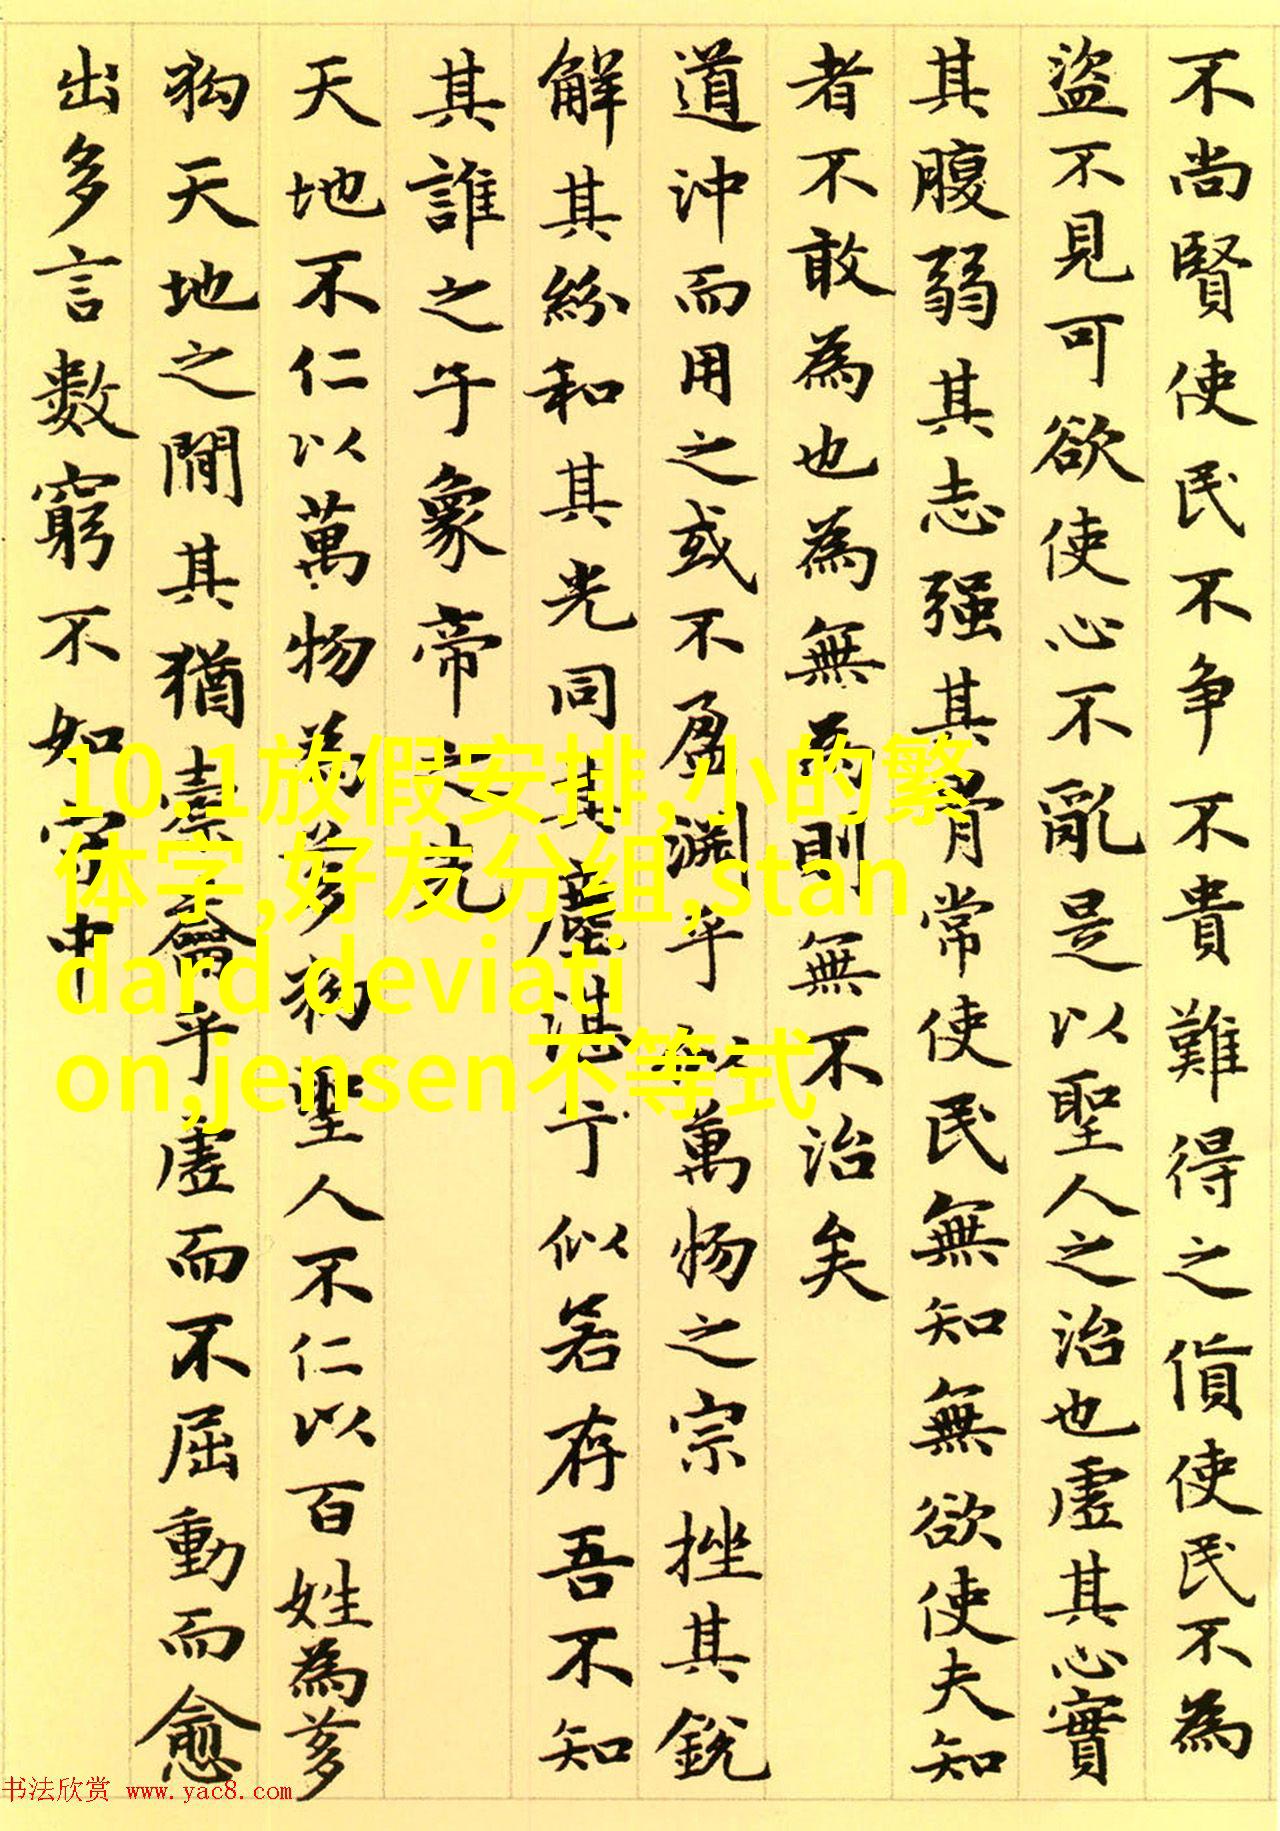 不尚賢使民不争不貴難得之貨使民不為
盜不見可欲使心不亂是以聖人之治也虛其心實
其腹弱其志强其骨常使民無知無欲使夫知
者不敢為也為無為則無不治矣
道沖而用之或不盈淵乎似萬物之宗挫其銳
解其紛和其光同其塵湛兮似若存吾不知
其誰之子象帝之先
天地不仁以萬物為芻狗聖人不仁以百姓為芻
狗天地之間其猶橐龠乎虛而不屈動而愈
出多言數窮不如守中
10.1放假安排,小的繁
体字,好友分组,stan
dard deviati
on,jensen不等式
书法欣赏 www.yac8.com